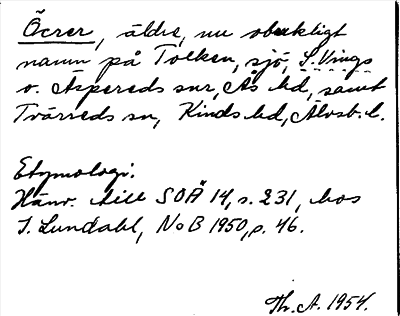 Öcrer, äldre, nu obrukligt
namn på Tolken, sjö, S. Vings
o. Äspereds snr, Ås hd, samt
Tvärreds sn, Kinds hd, Älvsb. l.
Etymologi.
Hänv. till SOÄ 14, s. 231, hos
I. Lundahl, NoB 1950, s. 46.
Th. A. 1954.